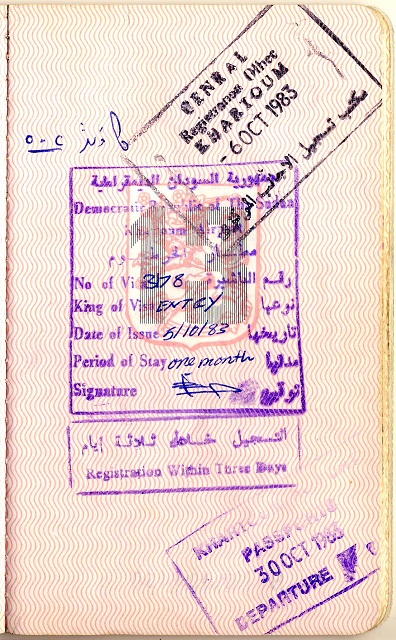 CENRAL
Registranoe Office
KHARIOUM
- 6 OCT 1983
مكتب تسجيل الاجانب
جمهورية السودان الديمقراطية
Democratic Republic of The Sudan
Khartoum Airport
مطار الخرطوم
No of Visa 3178 رقم التاشيرة
King of Visa ENTRY نوعها
Date of Issue 5/10/83 تاريخها
Period of Stay one month مدتها
Signature توقيع
التسجيل خلال ثلاثة أيام
Registration Within Three Days
PASSPORTS
30 OCT 1983
DEPARTURE